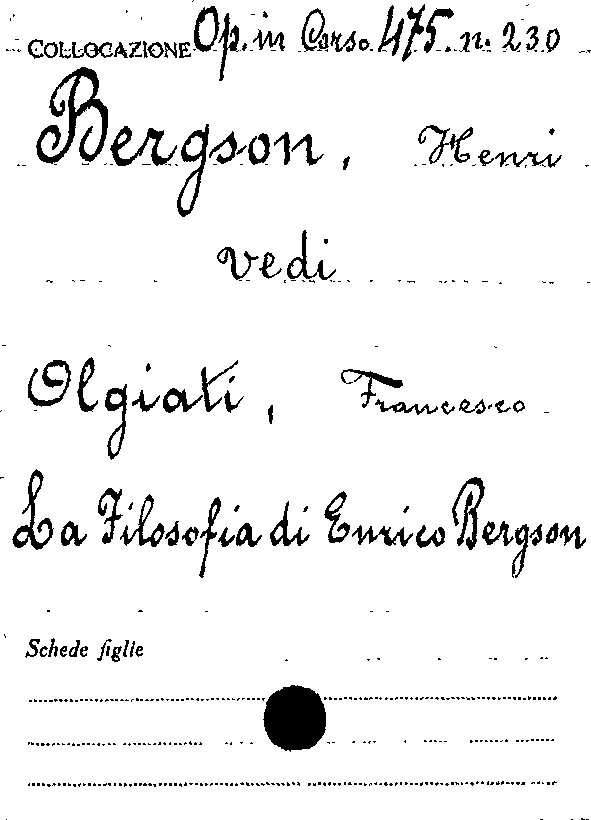 COLLOCAZIONE Op. in Corso 475. n. 230
Bergson, Henri
vedi
Olgiati, Francesco
La Filosofia di Enrico Bergson
Schede figlie